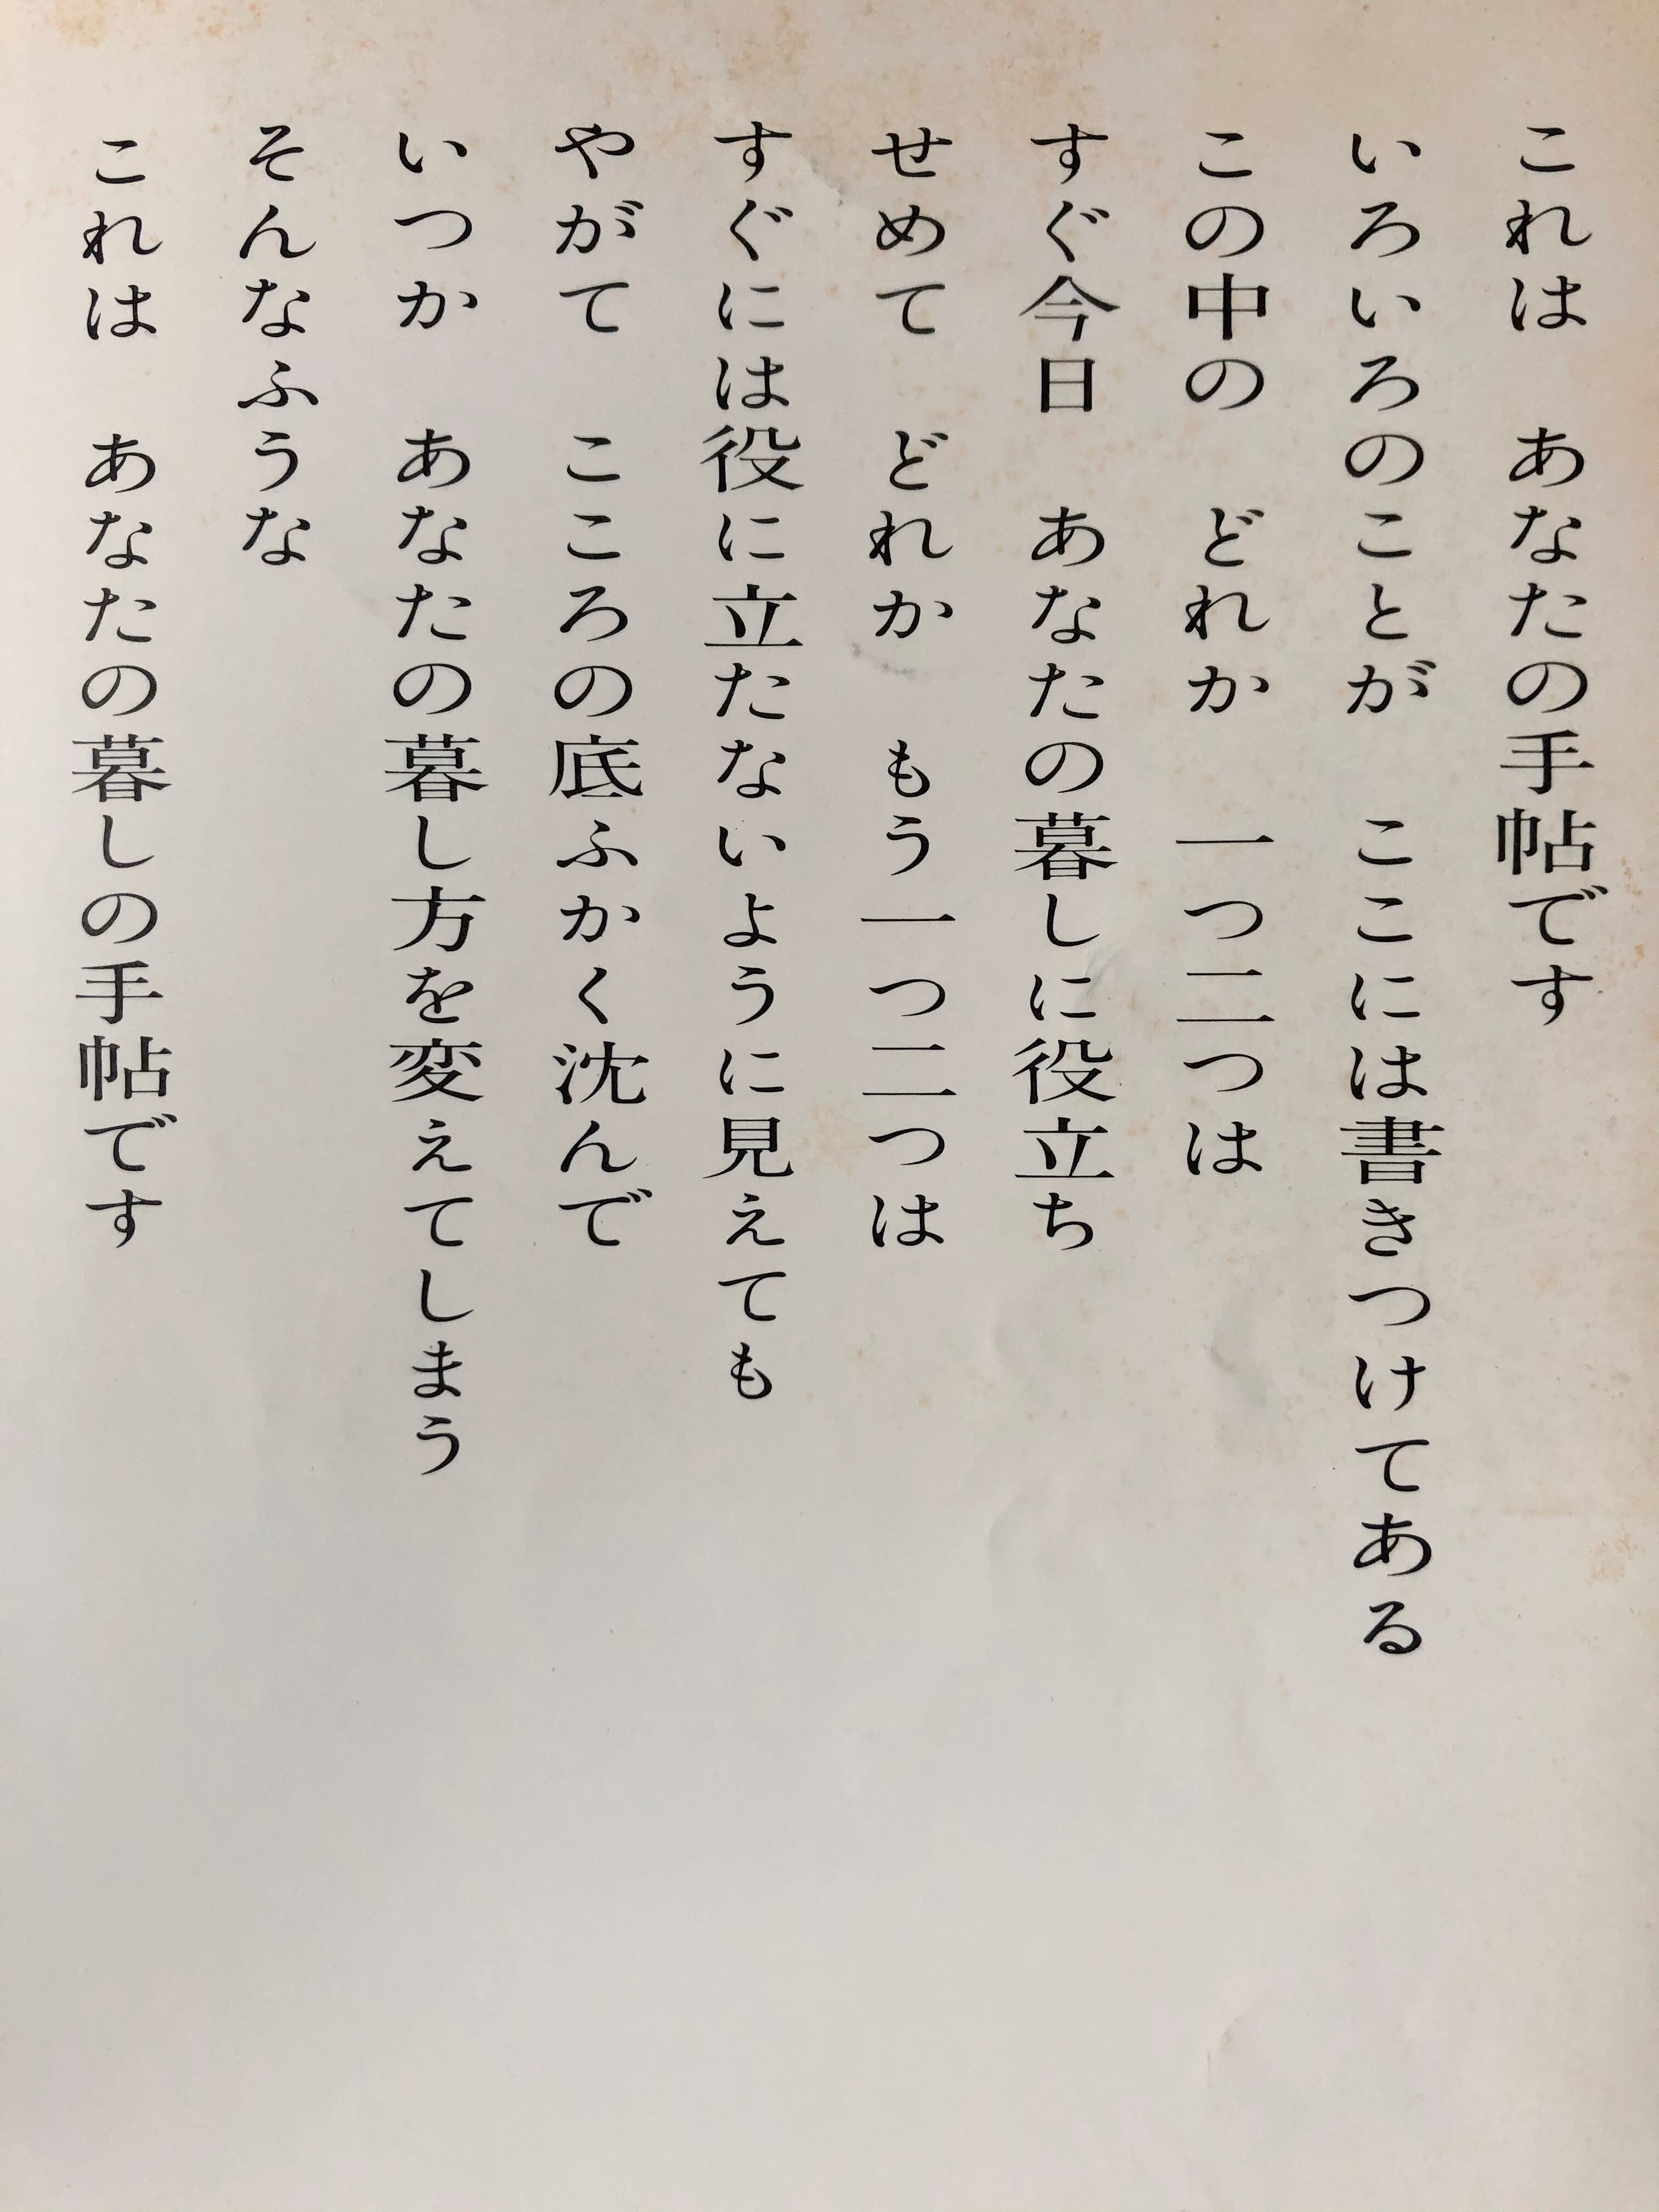 これは　あなたの手帖です
いろいろのことが　ここには書きつけてある
この中の　どれか　一つ二つは
すぐ今日　あなたの暮しに役立ち
せめて　どれか　もう一つ二つは
すぐには役に立たないように見えても
やがて　こころの底ふかく沈んで
いつか　あなたの暮し方を変えてしまう
そんなふうな
これは　あなたの暮しの手帖です